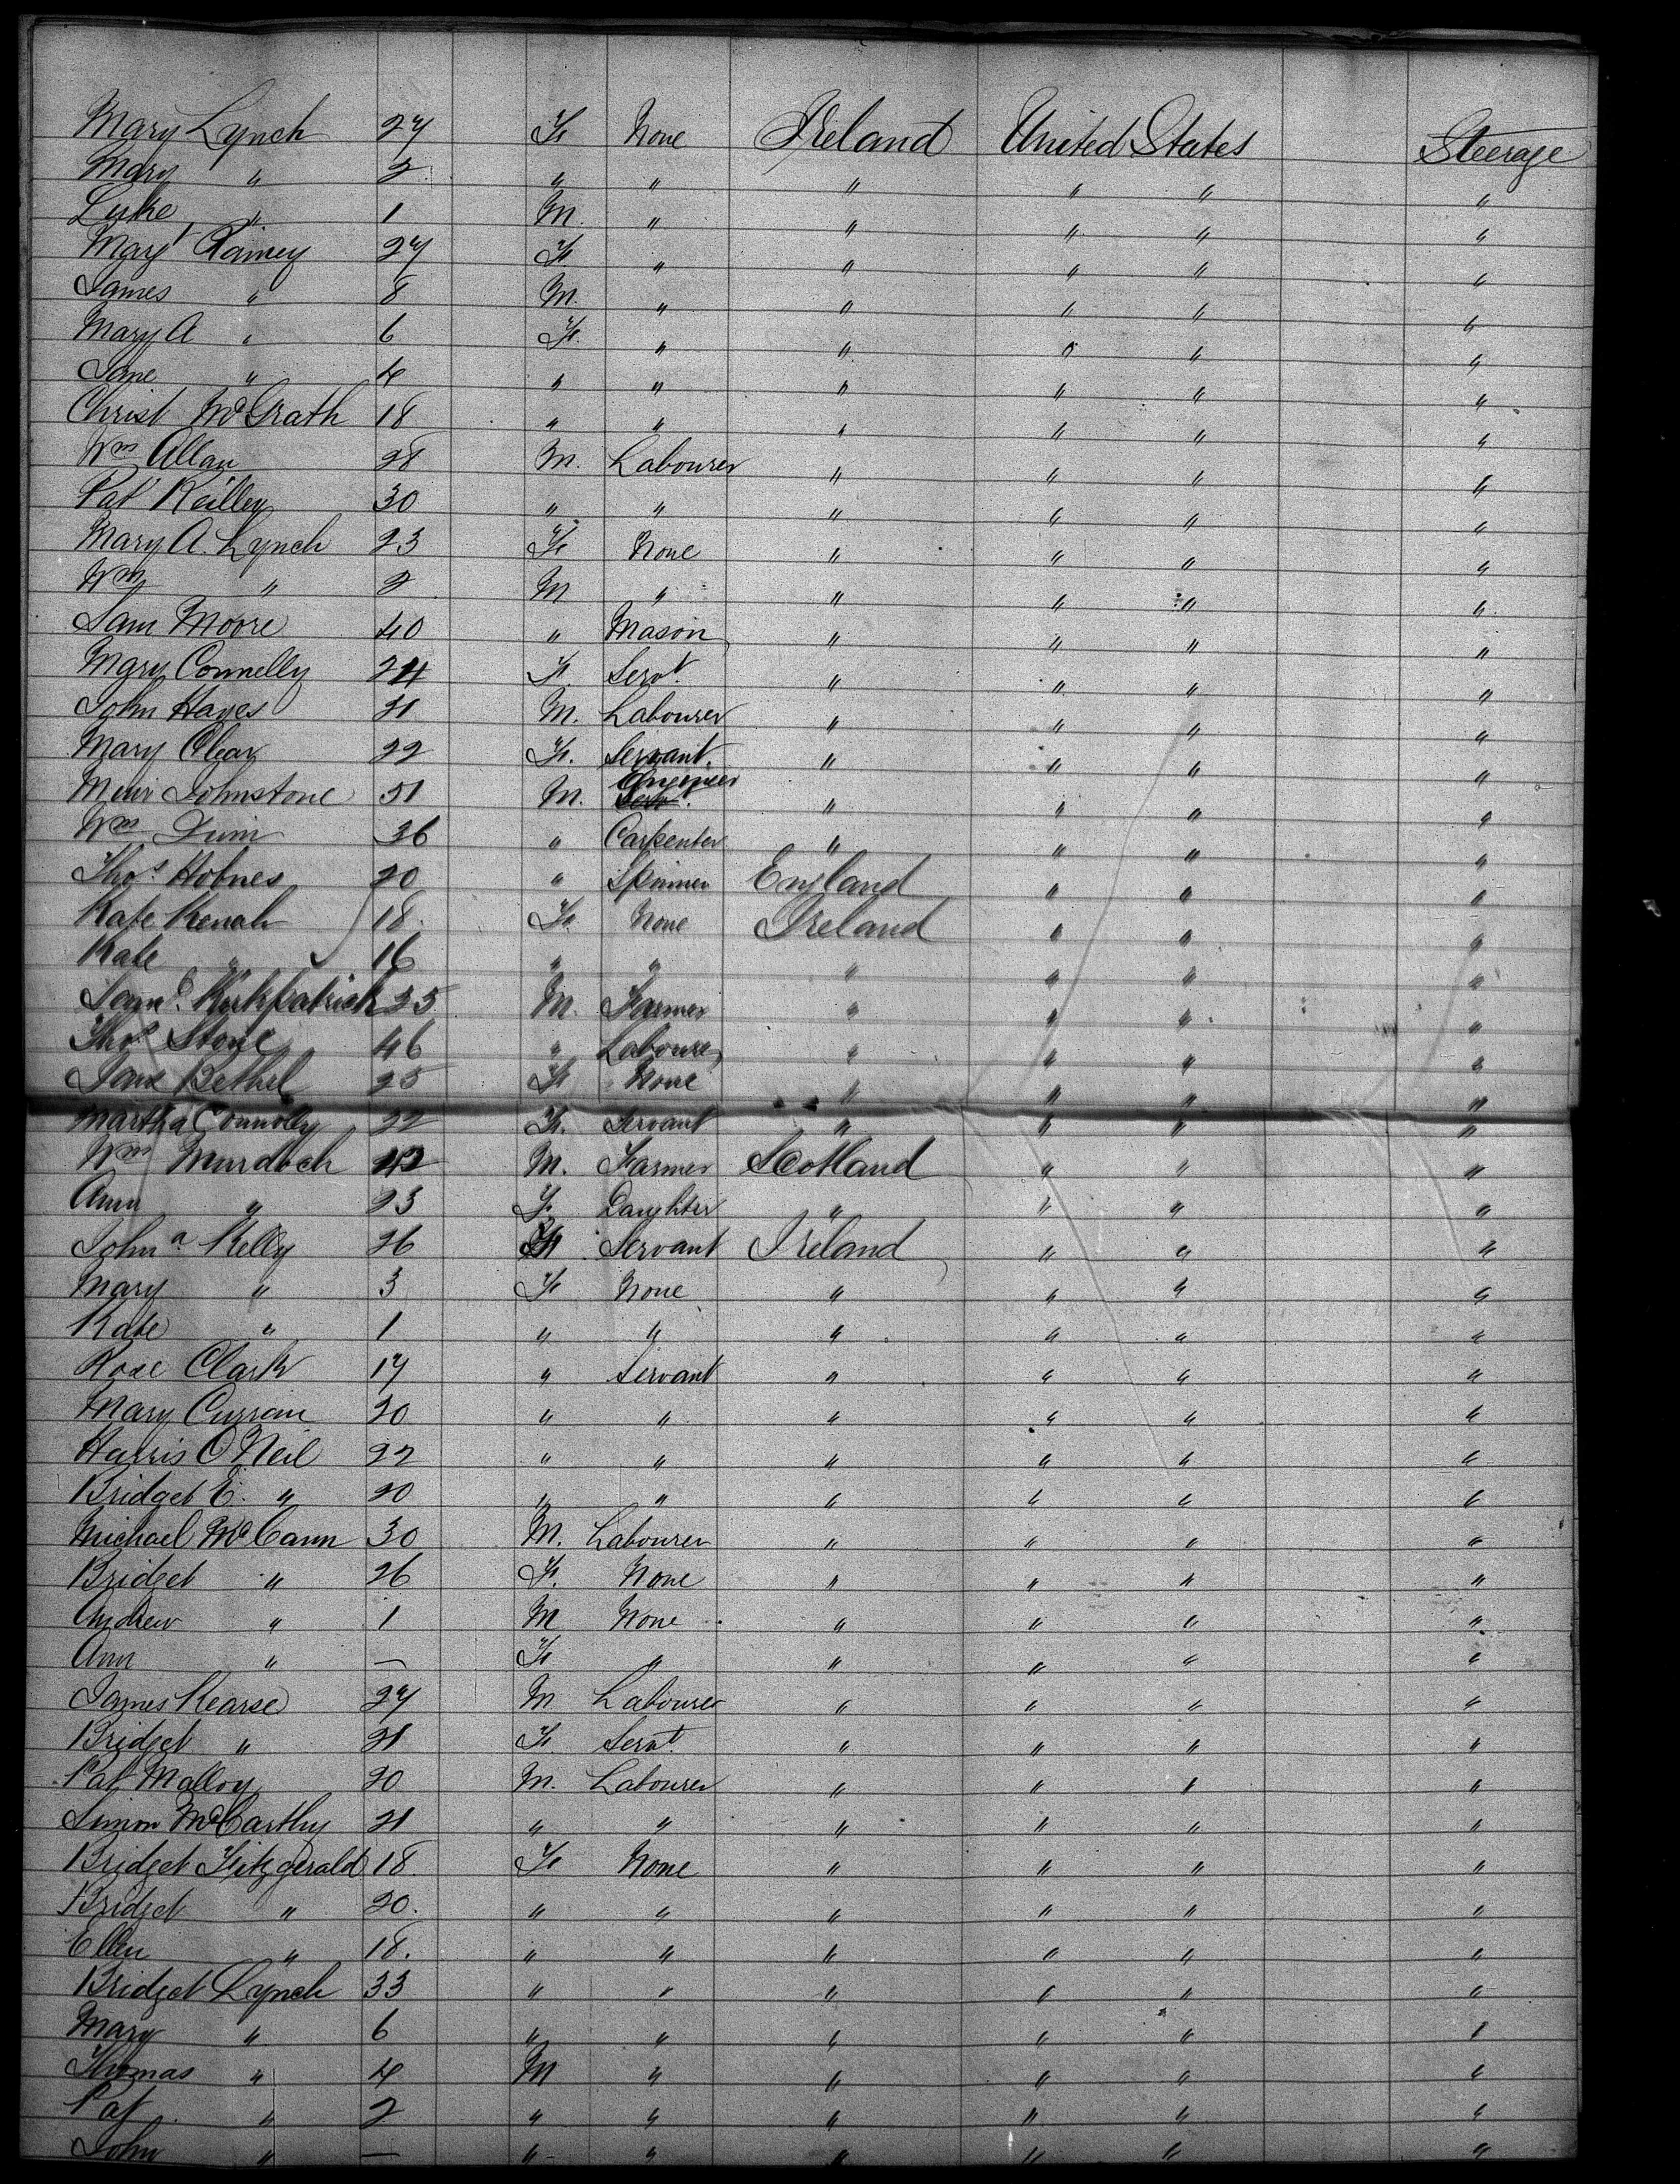 Mary Lynch 27 F. None Ireland United States Steerage
Mary " 2 " " " " " "
Luke " 1 M. " " " " "
Mary Rainey 27 F. " " " " "
James " 8 M. " " " " "
Mary A " 6 F. " " " " "
Jane " 4 " " " " " "
Christ McGrath 18 " " " " " "
Wm Allan 28 M. Labourer " " " "
Pat Reilley 30 " " " " " "
Mary A. Lynch 23 F. None " " " "
Wm " 2 M " " " " "
Sam Moore 40 " Mason " " " "
Mary Connelly 24 F. Servt. " " " "
John Hayes 21 M. Labourer " " " "
Mary Clear 22 F. Servant. " " " "
Muir Johnstone 51 M. Engineer " " " "
Wm 36 " Carpenter " " " "
Thos. 20 " Spinner England " " "
Kate Kenah 18. F. None Ireland " " "
Kate " 16 " " " " " "
Saml. Kirkpatrick 25 M. Farmer " " " "
Thos Stone 46 " Labourer " " " "
Jane Bethel 25 F. None " " " "
Martha Connolly 22 F. Servant " " " "
Wm Murdoch 42 M. Farmer Scotland " " "
Ann " 23 F. Daughter " " " "
Johna Kelly 26 F Servant Ireland " " "
Mary " 3 F None " " " "
Kate " 1 " " " " " "
Rose Clark 17 " Servant " " " "
Mary Curran 20 " " " " " "
Harris O'Neil 22 " " " " " "
Bridget E. " 20 " " " " " "
Michael McCann 30 M. Labourer " " " "
Bridget " 26 F. None " " " "
Andrew " 1 M None " " " "
Ann " — F. " " " " "
James Kearse 27 M. Labourer " " " "
Bridget " 21 F. Servt. " " " "
Pat Malloy 20 M. Labourer " " " "
Simon McCarthy 21 " " " " " "
Bridget Fitzgerald 18 F. None " " " "
Bridget " 20. " " " " " "
Ellen " 18. " " " " " "
Bridget Lynch 33 " " " " " "
Mary " 6 " " " " " "
Thomas " 4 M " " " " "
Pat " 2 " " " " " "
John " — " " " " " "